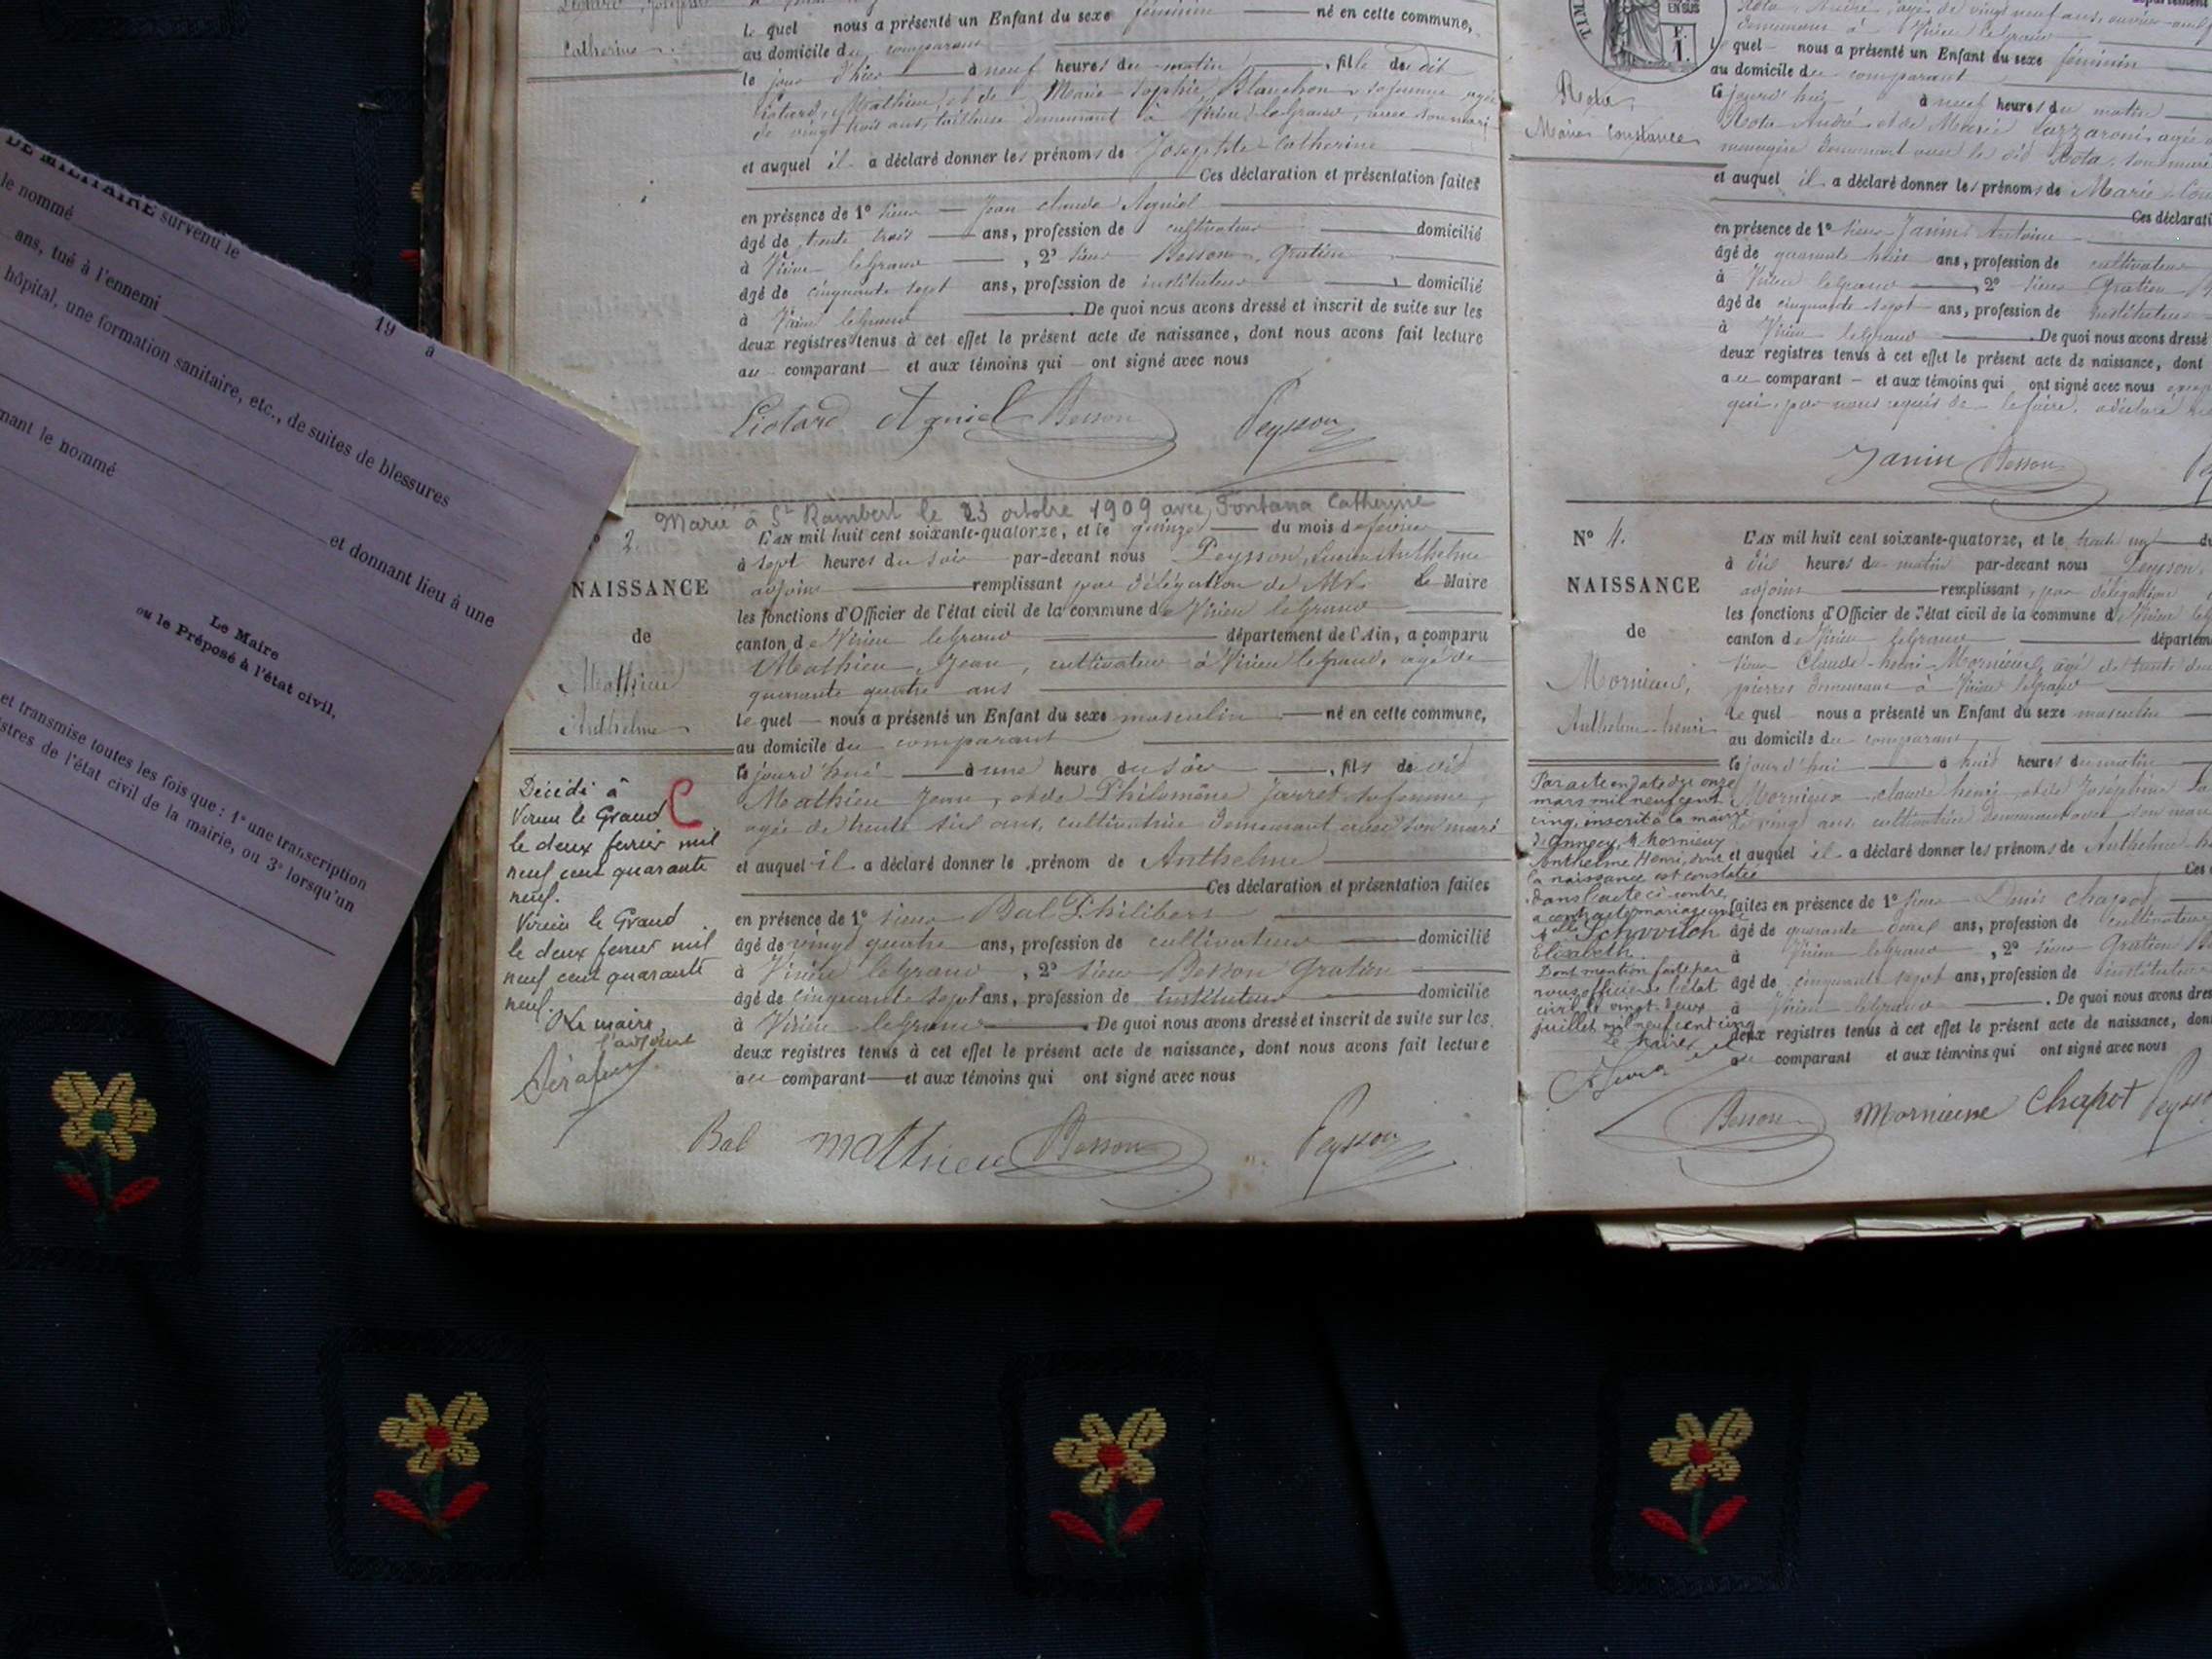 DE MILITAIRE survenu le
le nommé
19 à
ans, tué à l'ennemi
hôpital, une formation sanitaire, etc., de suites de blessures
nant le nommé
et donnant lieu à une
Le Maire
ou le Préposé à l'état civil,
et transmise toutes les fois que : 1° une transcription
stres de l'état civil de la mairie, ou 3° lorsqu'un
Catherine
le quel nous a présenté un Enfant du sexe féminin né en cette commune,
au domicile du comparant
le jour d'hier à neuf heures du matin, fille du dit
Liotard, Mathieu, et de Marie Sophie Blanchon, sa femme, agée
de vingt trois ans, tailleuse demeurant à Virieu le Grand, avec son mari
et auquel il a déclaré donner les prénoms de Josephte Catherine
Ces déclaration et présentation faites
en présence de 1° sieur Jean Claude Agniel
âgé de trente trois ans, profession de cultivateur domicilié
à Virieu le Grand, 2° sieur Besson, Gratien
âgé de cinquante sept ans, profession de instituteur, domicilié
à Virieu le Grand. De quoi nous avons dressé et inscrit de suite sur les
deux registres tenus à cet effet le présent acte de naissance, dont nous avons fait lecture
au comparant et aux témoins qui ont signé avec nous
Liotard Agniel Besson Peysson
Marié à St Rambert le 23 octobre 1909 avec Fontana Catherine
N° 2.
NAISSANCE
de
Mathieu
Anthelme
L'AN mil huit cent soixante-quatorze, et le quinze du mois de janvier
à sept heures du soir par-devant nous Peysson, Anthelme
adjoint remplissant par délégation de Mr. le Maire
les fonctions d'Officier de l'état civil de la commune de Virieu le Grand
canton de Virieu le Grand département de l'Ain, a comparu
Mathieu, Jean, cultivateur à Virieu le Grand, agé de
quarante quatre ans
le quel nous a présenté un Enfant du sexe masculin né en cette commune,
au domicile du comparant
le jourd'hui à une heure du soir, fils du dit
Mathieu Jean, et de Philomène Jarret sa femme,
agée de trente six ans, cultivatrice demeurant avec son mari
et auquel il a déclaré donner le prénom de Anthelme
Ces déclaration et présentation faites
en présence de 1° sieur Bal Philibert
âgé de vingt quatre ans, profession de cultivateur domicilié
à Virieu le Grand, 2° sieur Besson Gratien
âgé de cinquante sept ans, profession de instituteur domicilié
à Virieu le Grand. De quoi nous avons dressé et inscrit de suite sur les
deux registres tenus à cet effet le présent acte de naissance, dont nous avons fait lecture
au comparant et aux témoins qui ont signé avec nous
Bal Mathieu Besson Peysson
Décédé à
Virieu le Grand
le deux fevrier mil
neuf cent quarante
neuf.
Virieu le Grand
le deux fevrier mil
neuf cent quarante
neuf.
Le maire,
l'adjoint
Rota,
Marie Constance
Rota, André, agé de vingt neuf ans, ouvrier
demeurant à Virieu le Grand
le quel nous a présenté un Enfant du sexe féminin
au domicile du comparant
le jourd'hui à neuf heures du matin
Rota André et de Marie Lazzaroni, agée
ménagère demeurant avec le dit Rota, son mari
et auquel il a déclaré donner les prénoms de Marie Con
Ces déclarati
en présence de 1° sieur Janin Antoine
âgé de quarante huit ans, profession de cultivateur
à Virieu le Grand, 2° sieur Gratien
âgé de cinquante sept ans, profession de instituteur
à Virieu le Grand. De quoi nous avons dressé
deux registres tenus à cet effet le présent acte de naissance, dont
au comparant et aux témoins qui ont signé avec nous
qui, par nous requis de le faire, a déclaré
Janin Besson
N° 4.
NAISSANCE
de
Mornieux,
Anthelme henri
L'AN mil huit cent soixante-quatorze, et le trente un du
à dix heures du matin par-devant nous Peysson,
adjoint remplissant, par délégation
les fonctions d'Officier de l'état civil de la commune de Virieu le
canton de Virieu le Grand départem
sieur Claude henri Mornieux, agé de trente
pierres demeurant à Virieu le Grand
le quel nous a présenté un Enfant du sexe masculin
au domicile du comparant
le jourd'hui à huit heures du matin
Mornieux claude henri, et de Joséphine
de vingt ans, cultivatrice demeurant avec son mari
et auquel il a déclaré donner les prénoms de Anthelme
Ces
faites en présence de 1° sieur Denis Chapot
âgé de quarante ans, profession de cultivateur
à Virieu le Grand, 2° sieur Gratien
âgé de cinquante sept ans, profession de instituteur
à Virieu le Grand. De quoi nous avons dres
deux registres tenus à cet effet le présent acte de naissance, don
au comparant et aux témoins qui ont signé avec nous
Besson Mornieux Chapot Peysso
Par acte en date du onze
mars mil neuf cent
cinq, inscrit à la mairie
d'Annecy, M. Mornieux
Anthelme Henri, dont
la naissance est constatée
dans l'acte ci contre,
a contracté mariage avec
Melle Schovitch
Elisabeth.
Dont mention faite par
nous officier de l'état
civil le vingt deux
juillet mil neuf cent cinq
Le Maire